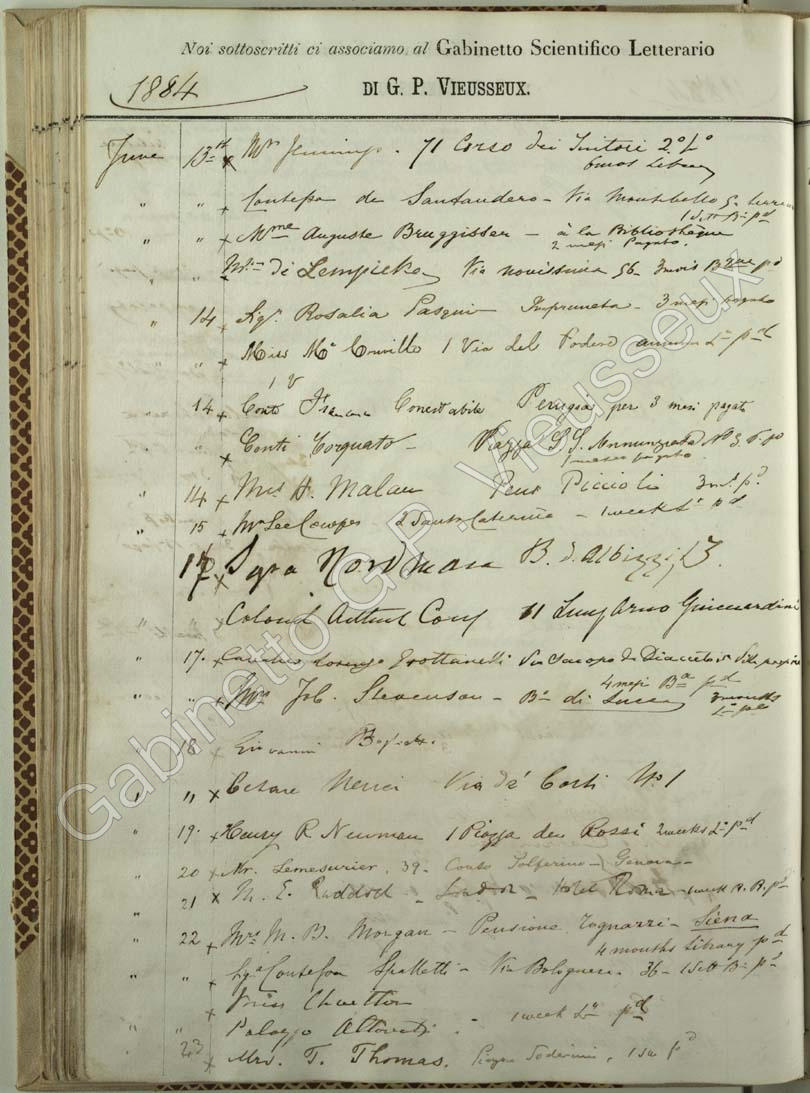 Noi sottoscritti ci associamo al Gabinetto Scientifico Letterario
DI G. P. VIEUSSEUX.
1884
June 13th x Mrs Jennings. 71 Corso dei Tintori 2° L°
6mos Library
" " x Contessa de Santandero - Via Montebello
1 Sett Bi pd
" " x Mme Auguste Bruggisser - à la Bibliothèque
2 mesi Pagato.
" di Lempicka Via novissima 56 - 3 mois pd
" 14 x Sigra Rosalia Pasquini Impruneta - 3 mesi pagato
" x Miss 1 Via del Podere annum Ln pd
14 x Conte Francesco Conestabile Perugia per 3 mesi pagato
" " x Conti Torquato - Piazza SS. Annunziata No 3
1 mese pagato.
" 14 x Mrs H. Malan Pens Piccioli 3 pd
" 15 x Mr Lee Cowper 2 Santa Caterina - 1 week Ly pd
17 x Sgra Nordmann B. d. Albizzi, 13.
x Colonel 11 Lung Arno Guicciardini
" 17. x Cavaliere Lorenzo Grottanelli Via Jacopo da Diacceto
4 mesi Ba pd
" " x Mrs Job. Stevenson - Bi di Lucca 3 months
Ln pd
" 18 x Giovanni
" " x Cesare Nerici Via de' Conti No 1
" 19. x Henry R Newman 1 Piazza dei Rossi 2 weeks Ln pd
" 20 x Mr. Lemesurier, 39 - Corso Solferino - Genova -
" 21 x M. E. Ruddock - London - Hotel Roma - 1 week pd
" 22 x Mrs M. B. Morgan - Pensione Tognazzi - Siena
4 months Library pd
" " x Sga Contessa Spalletti - Via Bolognese 36 - 1 Sett Bi pd
x Miss
" " x Palazzo Altoviti - 1 week Ln pd
23 x Mrs. T. Thomas. Piazza Soderini, 1 pd
Gabinetto G.P. Vieusseux